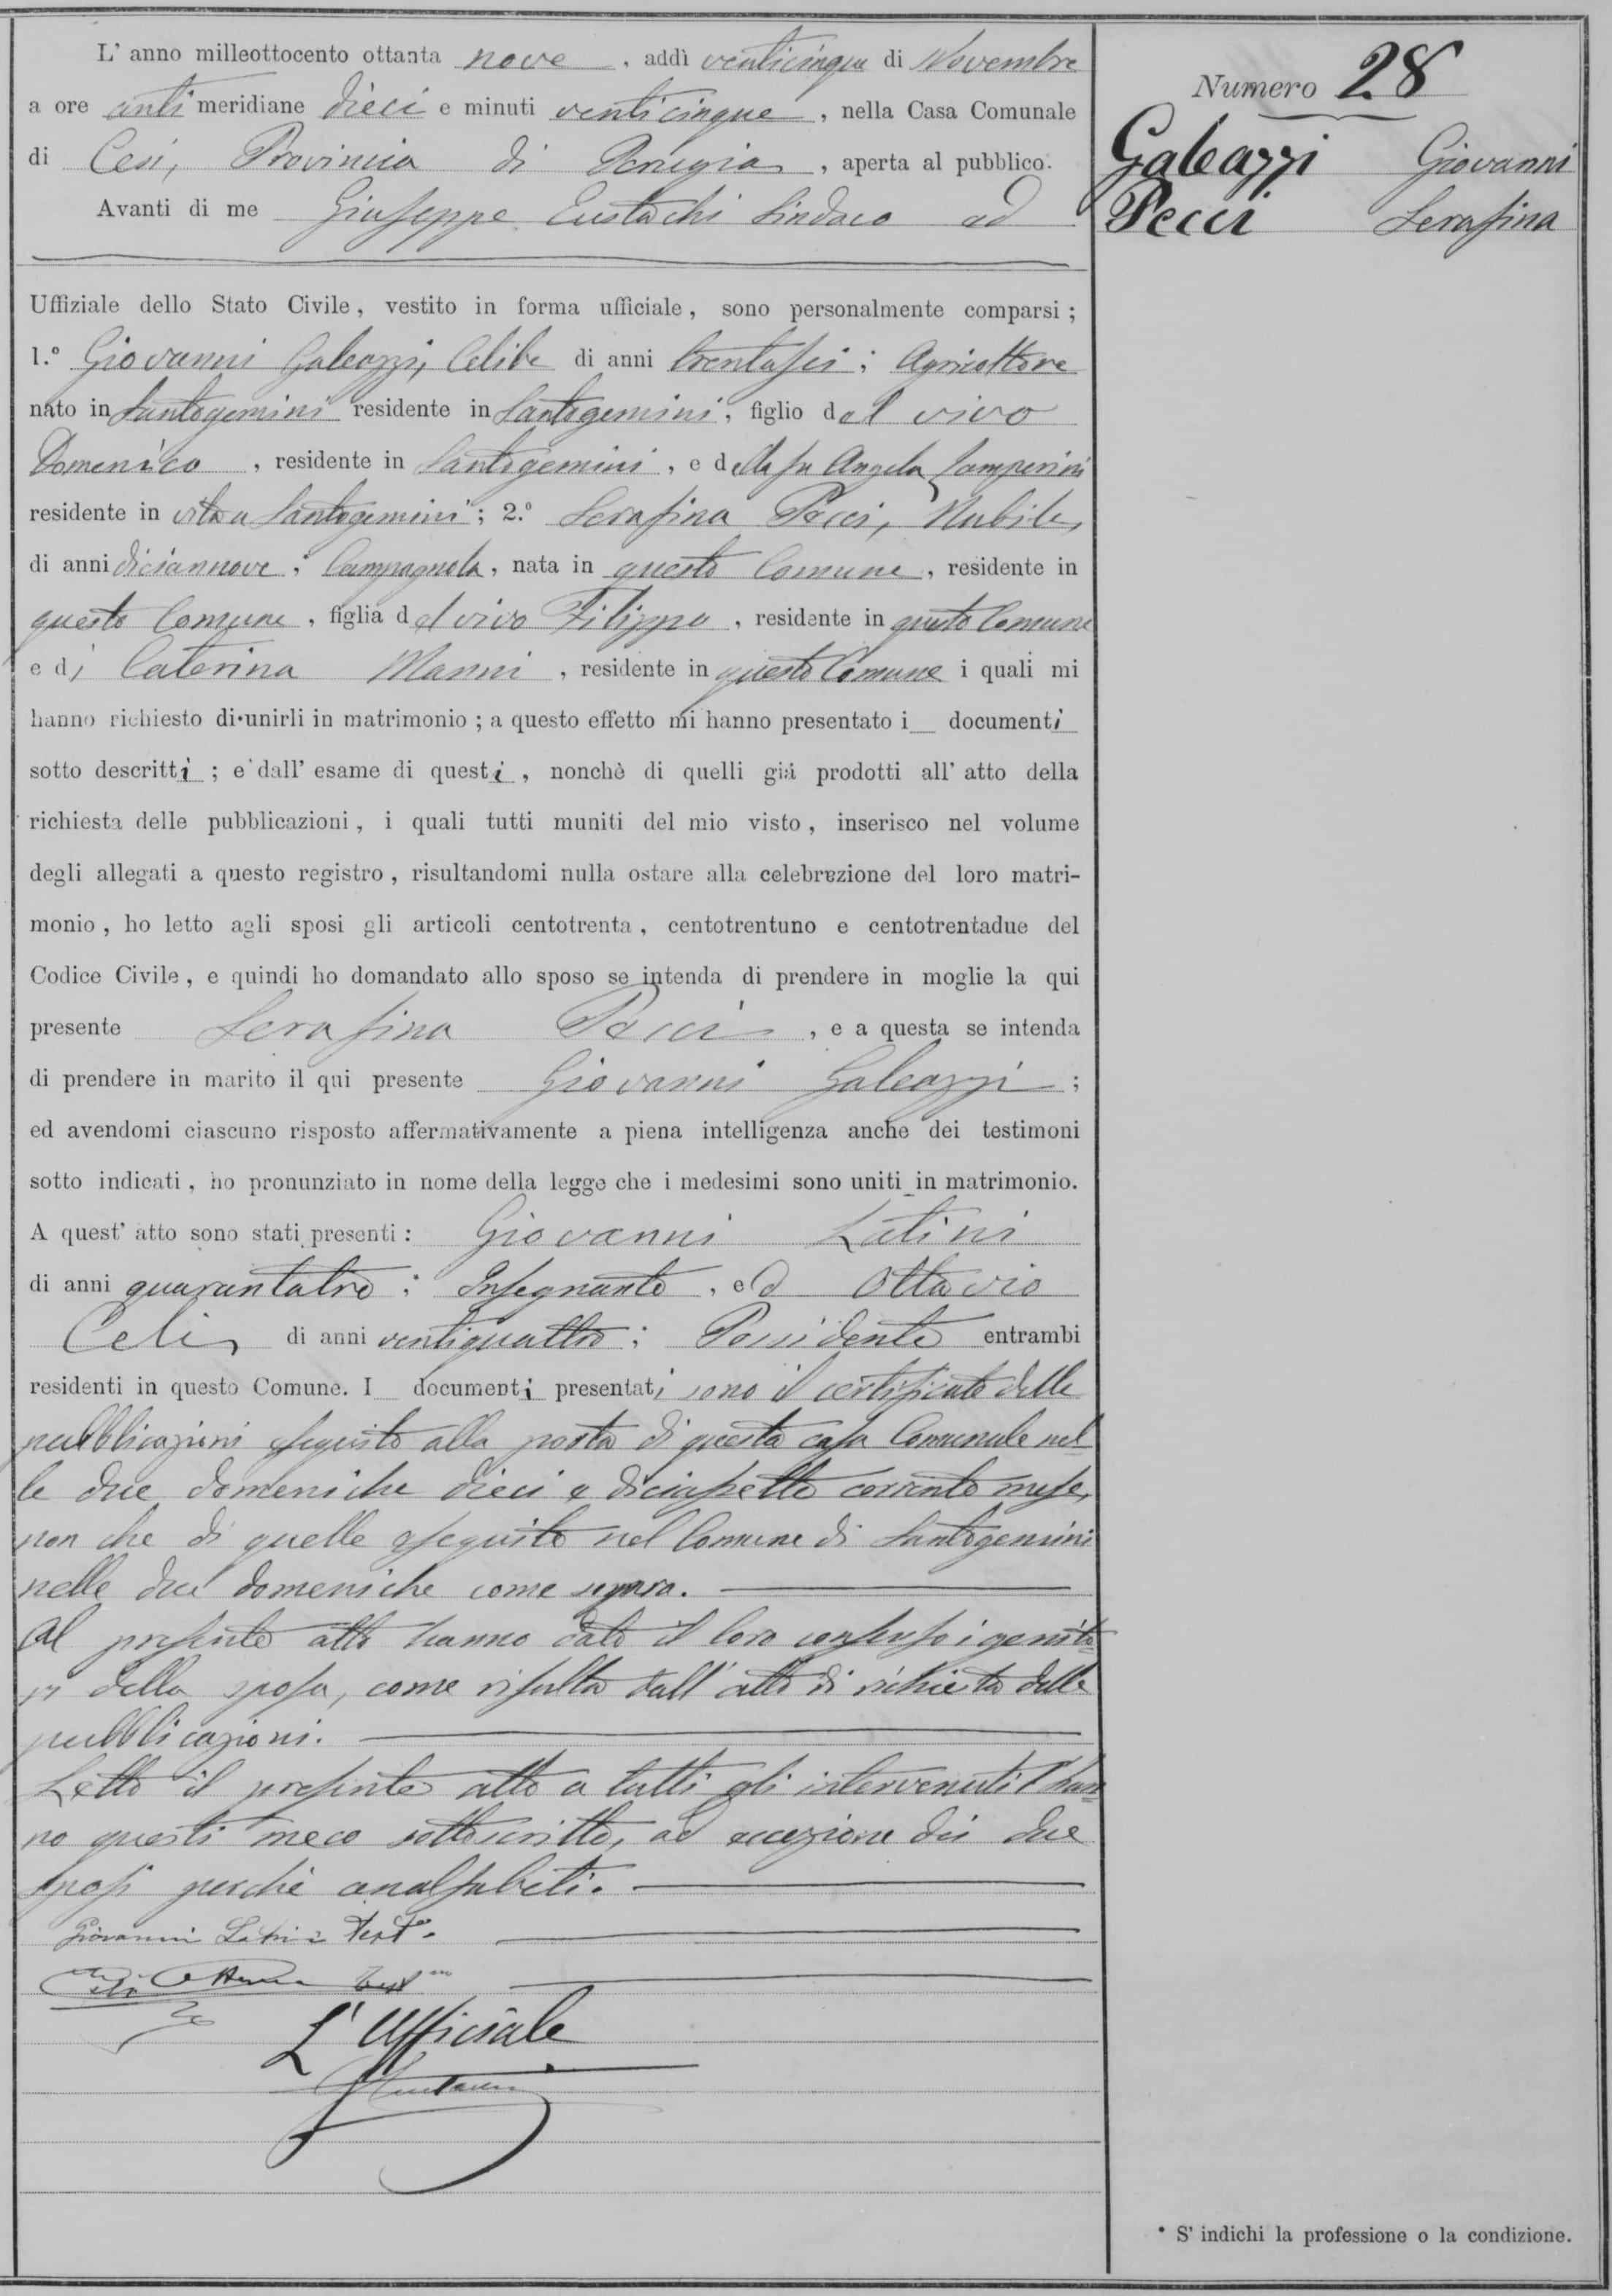 L' anno milleottocento ottanta nove, addì venticinque di Novembre
a ore anti meridiane dieci e minuti venticinque, nella Casa Comunale
di Cesi, Provincia di Perugia, aperta al pubblico.
Avanti di me Giuseppe Eustachi Sindaco ed
Numero 28
Galeazzi Giovanni
Pecci Serafina
Uffiziale dello Stato Civile, vestito in forma ufficiale, sono personalmente comparsi;
1.° Giovanni Galeazzi, Celibe di anni trentasei; Agricoltore
nato in Santogemini residente in Santogemini, figlio del vivo
Domenico, residente in Santogemini, e della fu Angela Samperini
residente in vita a Santogemini; 2.° Serafina Pecci, Nubile,
di anni diciannove; Campagnola, nata in questo Comune, residente in
questo Comune, figlia del vivo Filippo, residente in questo Comune
e di Caterina Manni, residente in questo Comune i quali mi
hanno richiesto di unirli in matrimonio; a questo effetto mi hanno presentato i documenti
sotto descritti; e dall' esame di questi, nonchè di quelli già prodotti all' atto della
richiesta delle pubblicazioni, i quali tutti muniti del mio visto, inserisco nel volume
degli allegati a questo registro, risultandomi nulla ostare alla celebrazione del loro matri-
monio, ho letto agli sposi gli articoli centotrenta, centotrentuno e centotrentadue del
Codice Civile, e quindi ho domandato allo sposo se intenda di prendere in moglie la qui
presente Serafina Pecci, e a questa se intenda
di prendere in marito il qui presente Giovanni Galeazzi;
ed avendomi ciascuno risposto affermativamente a piena intelligenza anche dei testimoni
sotto indicati, ho pronunziato in nome della legge che i medesimi sono uniti in matrimonio.
A quest' atto sono stati presenti: Giovanni Latini
di anni quarantatre; Insegnante, ed Ottavio
Celi, di anni ventiquattro; Possidente entrambi
residenti in questo Comune. I documenti presentati sono il certificato delle
pubblicazioni eseguite alla porta di questa casa Comunale nel-
le due domeniche dieci e diciassette corrente mese,
non che di quelle eseguite nel Comune di Santogemini
nelle due domeniche come sopra.
Al presente atto hanno dato il loro consenso i genito-
ri della sposa, come risulta dall' atto di richiesta delle
pubblicazioni.
Letto il presente atto a tutti gli intervenuti l'han-
no questi meco sottoscritto, ad eccezione dei due
sposi perchè analfabeti.
Giovanni Latini Test.e
Celi Ottavio
L' Ufficiale
GEustachi
* S' indichi la professione o la condizione.